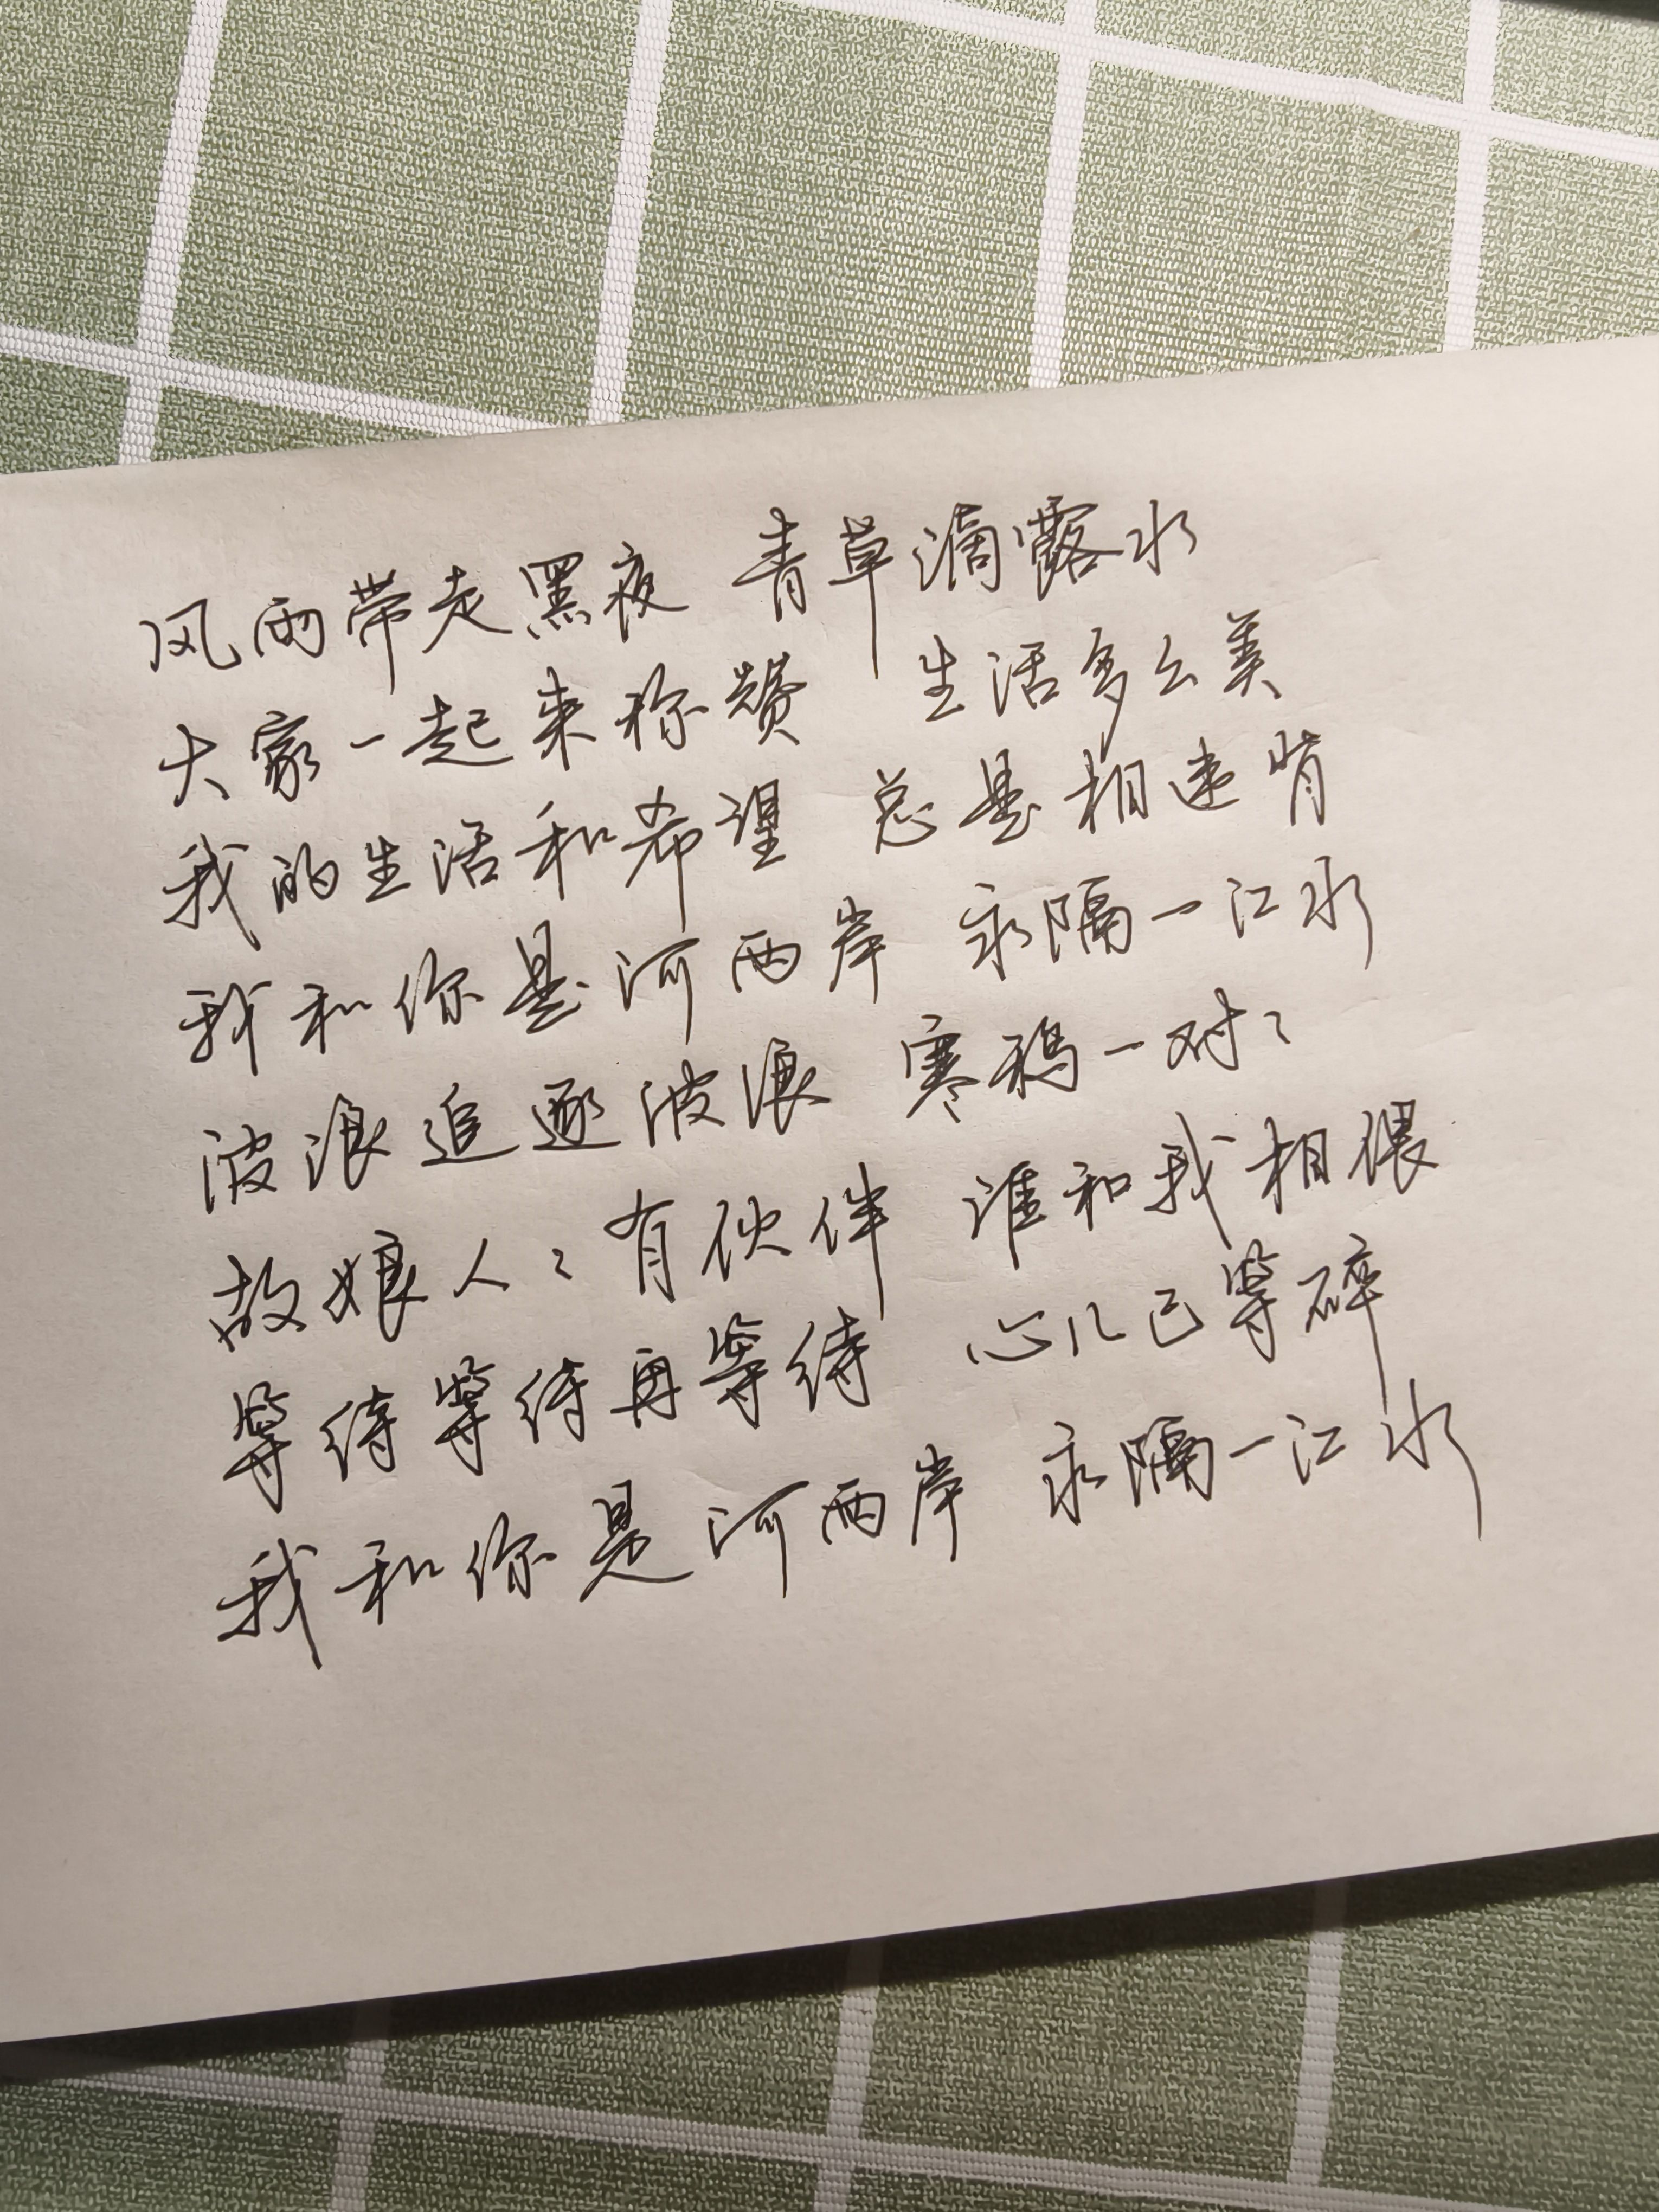 风雨带走黑夜 青草滴露水
大家一起来称赞 生活多么美
我的生活和希望 总是相违背
我和你是河两岸 永隔一江水
波浪追逐波浪 寒鸦一对々
故娘人々有伙伴 谁和我相偎
等待等待再等待 心儿已等碎
我和你是河两岸 永隔一江水